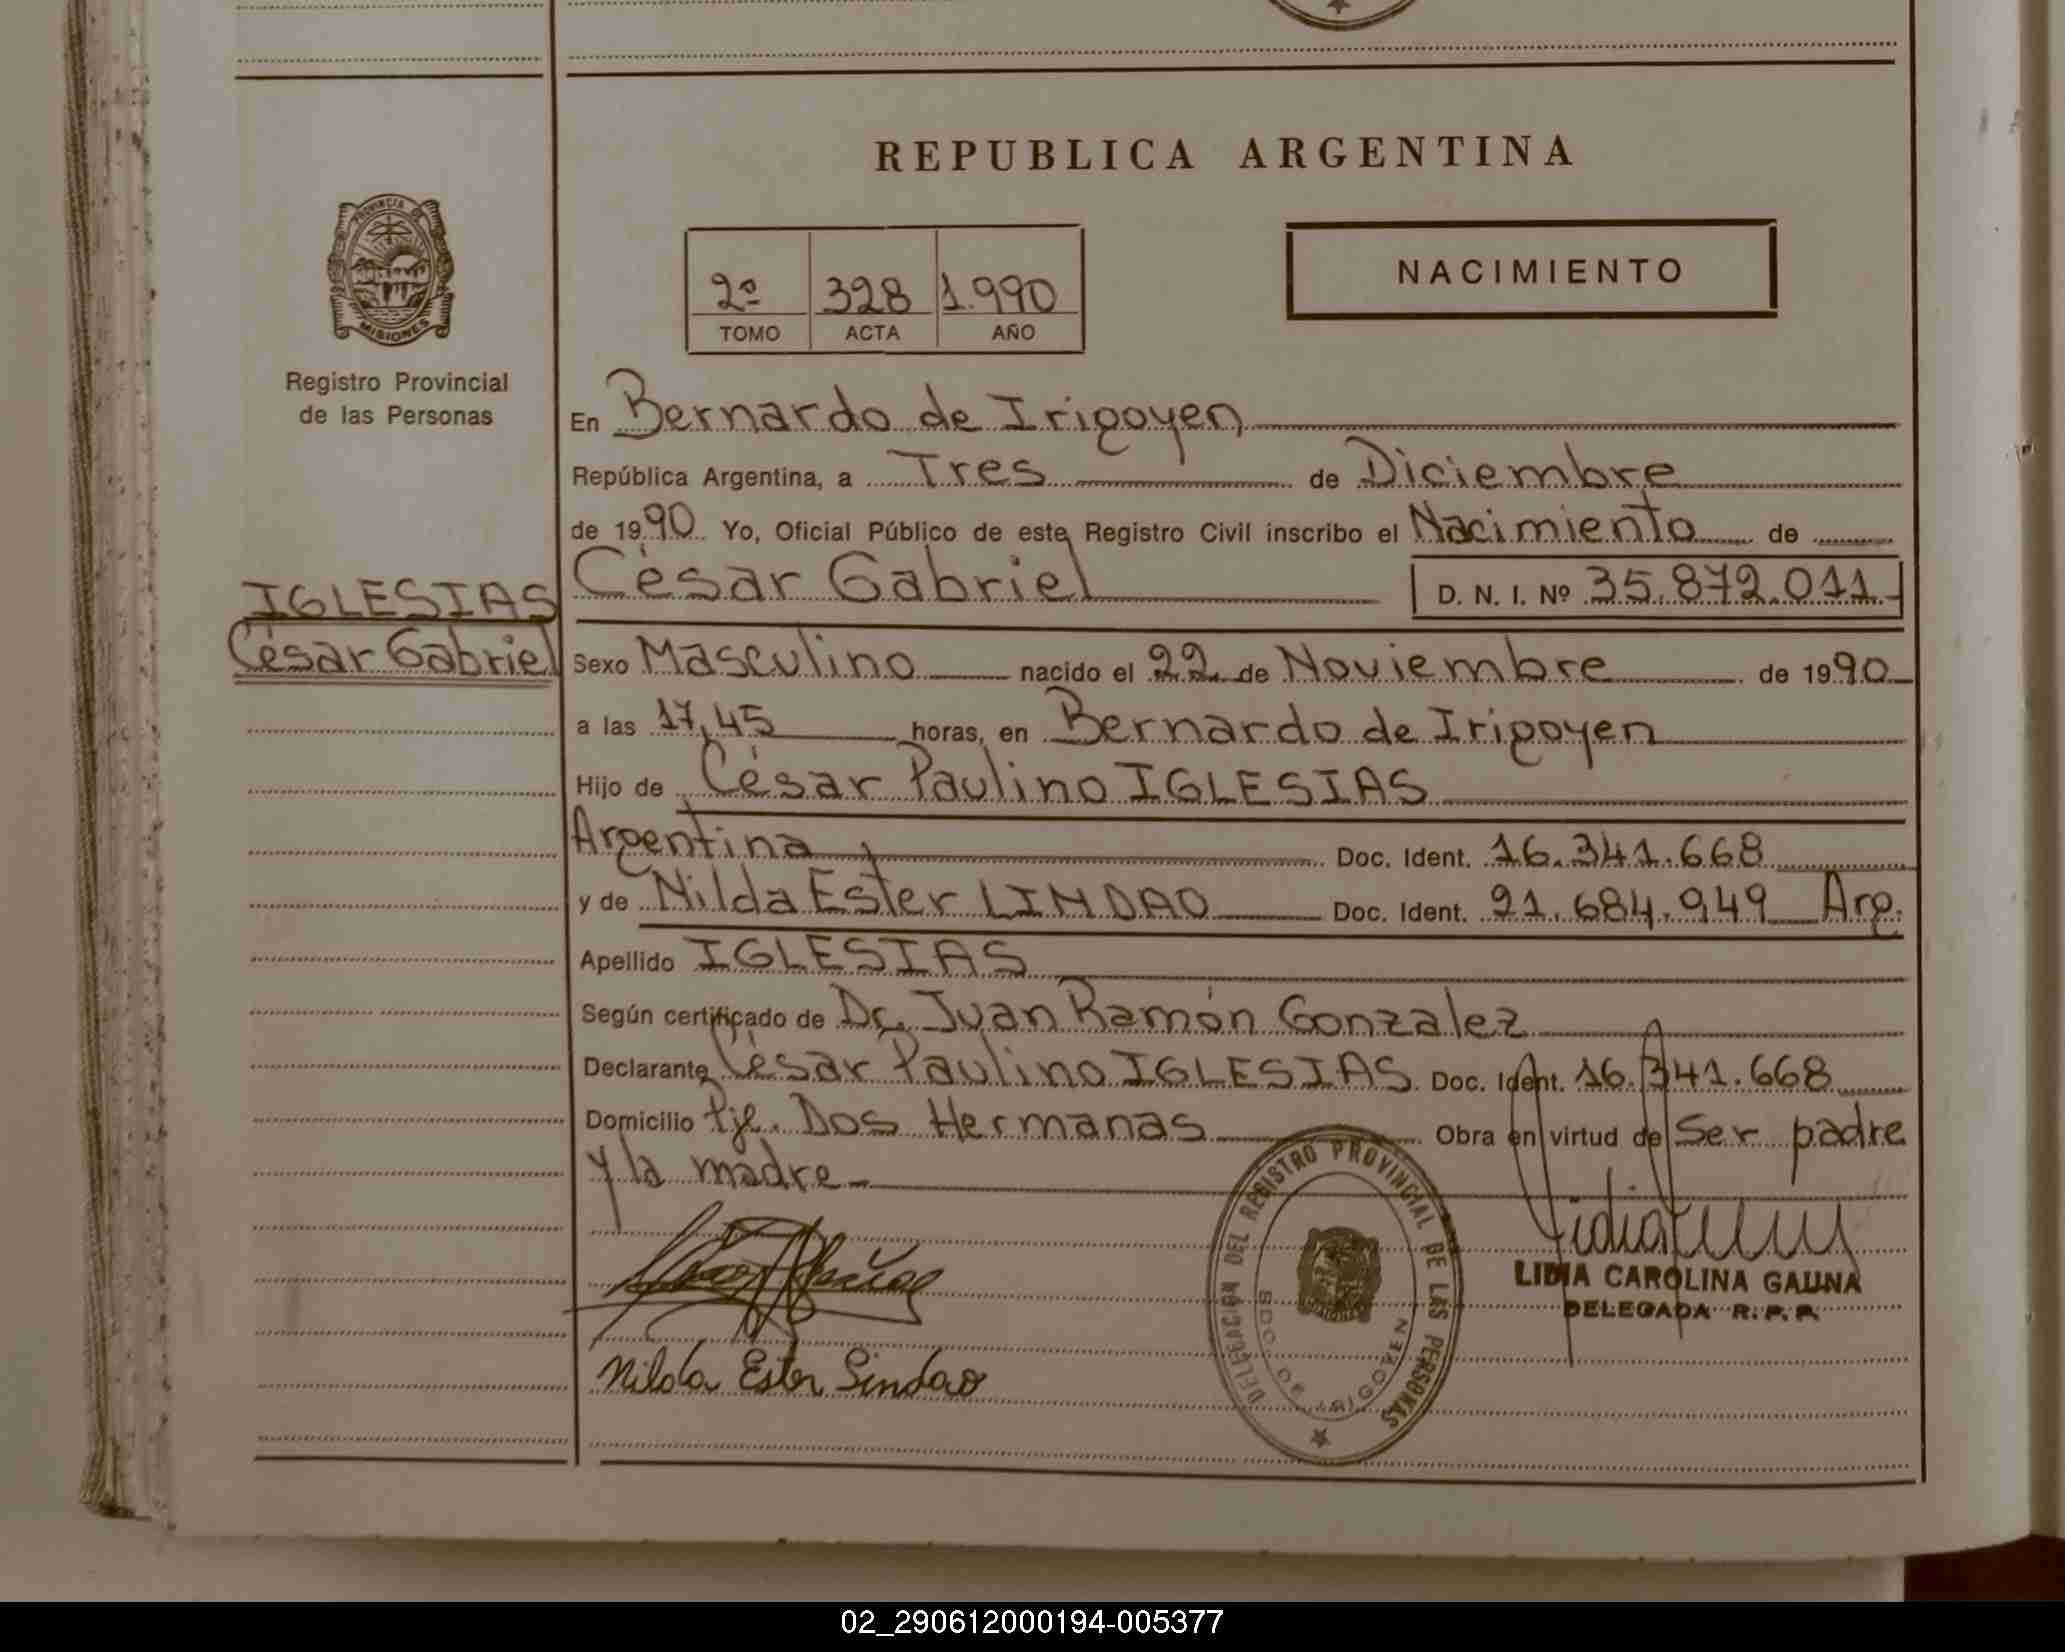 REPUBLICA ARGENTINA
PROVINCIA DE
MISIONES
Registro Provincial
de las Personas
2º 328 1.990
TOMO ACTA AÑO
NACIMIENTO
En Bernardo de Irigoyen
República Argentina, a Tres de Diciembre
de 1990 Yo, Oficial Público de este Registro Civil inscribo el Nacimiento de
IGLESIAS
César Gabriel
César Gabriel D. N. I. Nº 35.872.011.-
Sexo Masculino nacido el 22 de Noviembre de 1990
a las 17,45 horas, en Bernardo de Irigoyen
Hijo de César Paulino IGLESIAS
Argentina Doc. Ident. 16.341.668
y de Nilda Ester LINDAO Doc. Ident. 21.684.949 Arg.
Apellido IGLESIAS
Según certificado de Dr. Juan Ramón Gonzalez
Declarante César Paulino IGLESIAS Doc. Ident. 16.341.668
Domicilio Pje. Dos Hermanas Obra en virtud de Ser padre
y la madre
DELEGACION DEL REGISTRO PROVINCIAL DE LAS PERSONAS
BDO. DE IRIGOYEN
LIDIA CAROLINA GAUNA
DELEGADA R.P.P.
Nilda Ester Lindao
02_290612000194-005377